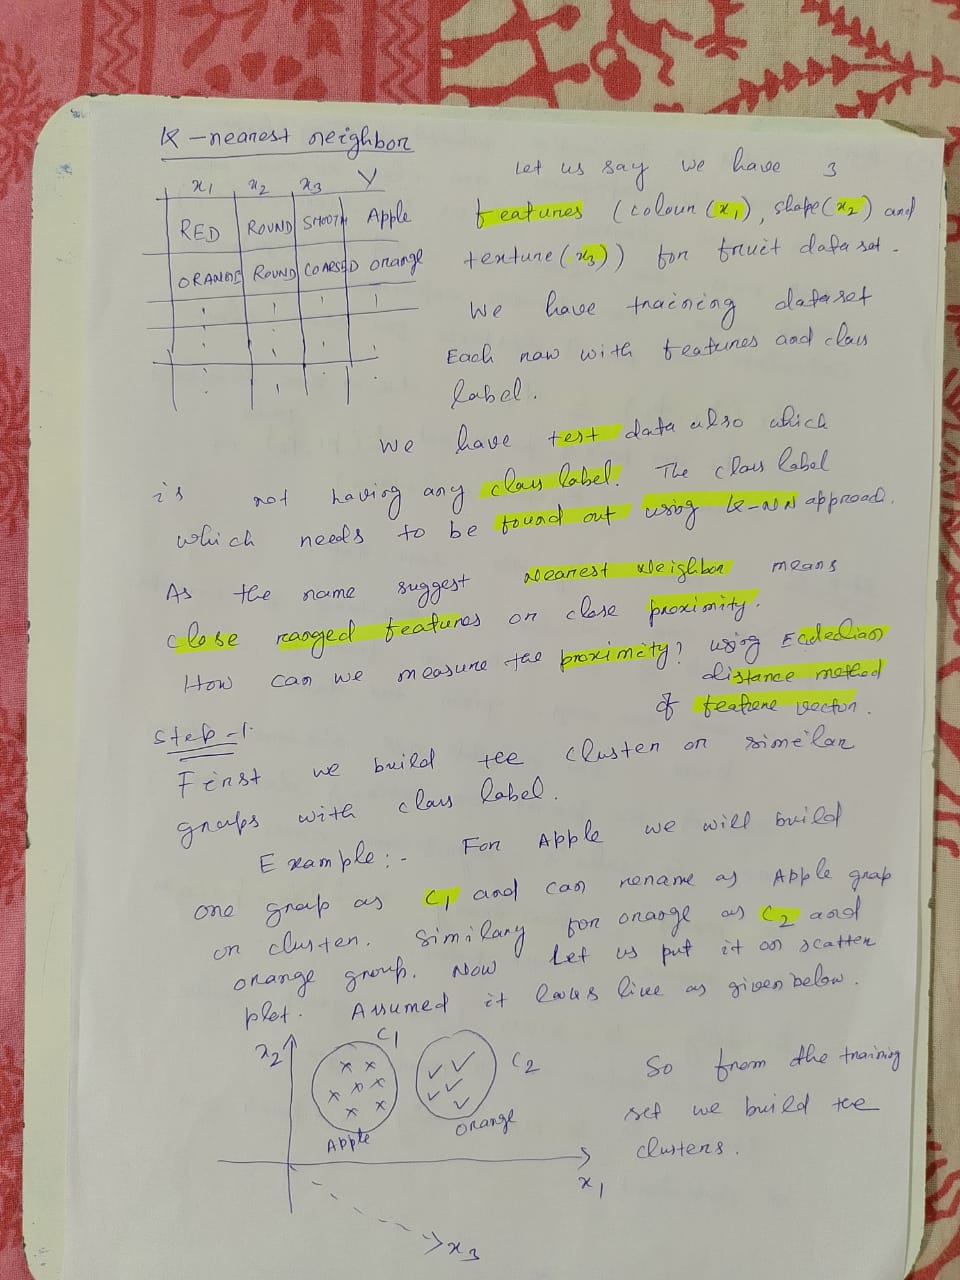 K-nearest neighbor
x1 x2 x3 Y
RED ROUND SMOOTH Apple
ORANGE ROUND COARSED orange
Let us say we have 3
features (colour (x1), shape (x2) and
texture (x3)) for fruit data set.
We have training dataset
Each row with features and class
label.
We have test data also which
is not having any class label. The class label
which needs to be found out using K-NN approach.
As the name suggest Nearest Neighbor means
close ranged features or close proximity.
How can we measure the proximity? using Ecledian
distance method
of feature vector.
Step-1.
First we build the cluster or similar
groups with class label.
Example:- For Apple we will build
one group as C1 and can rename as Apple group
or cluster. Similary for orange as C2 and
orange group. Now Let us put it on scatter
plot. Assumed it looks like as given below.
C1
x2
C2
Apple
orange
x1
x3
So from the training
set we build the
clusters.